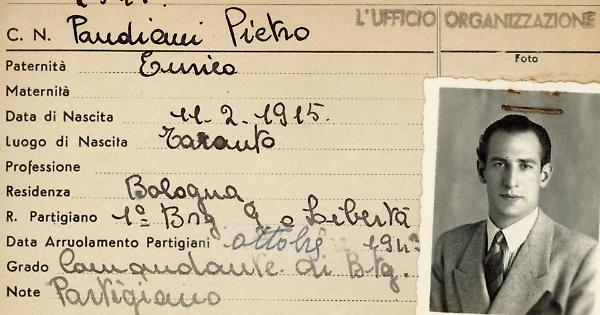 L'UFFICIO ORGANIZZAZIONE
C. N. Pandiani Pietro
Foto
Paternità Enrico
Maternità
Data di Nascita 11-2-1915.
Luogo di Nascita Taranto
Professione
Residenza Bologna
R. Partigiano 1º Brg G e Libertà
Data Arruolamento Partigiani ottobre 1943
Grado Comandante di Btg.
Note Partigiano